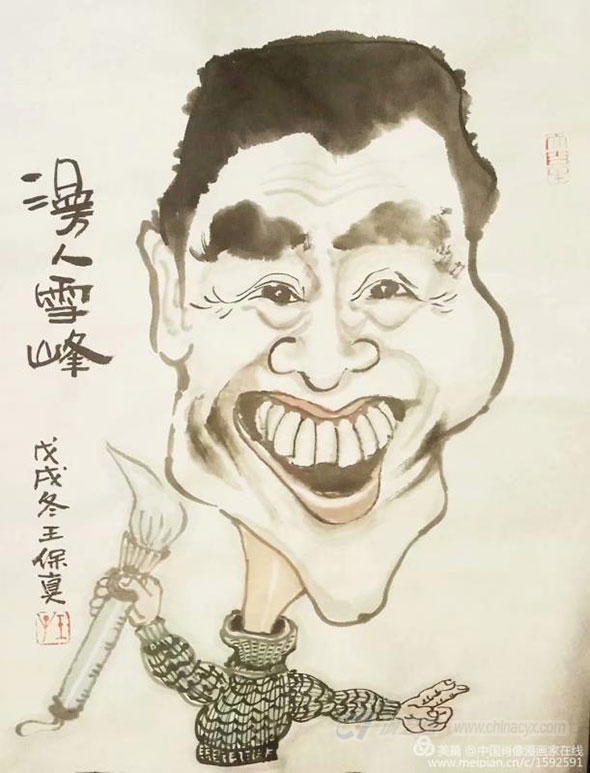 漫人雪峰
戊戌冬王保真
www.chinacyx.com
美篇 @中国肖像漫画家在线
www.meipian.cn/c/1592591